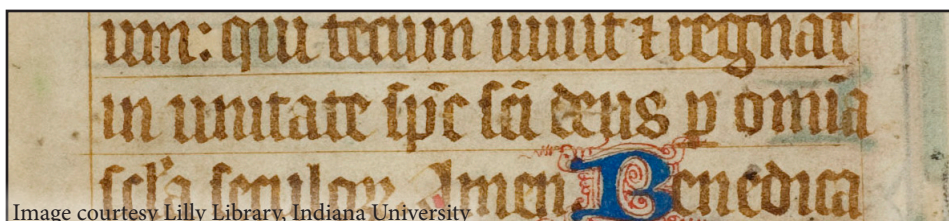 um: qui tecum uiuit ⁊ regnat
in unitate sp̄c sc̄i deus p omīa
scl'a seculoꝝ. Amen Benedica
Image courtesy Lilly Library, Indiana University